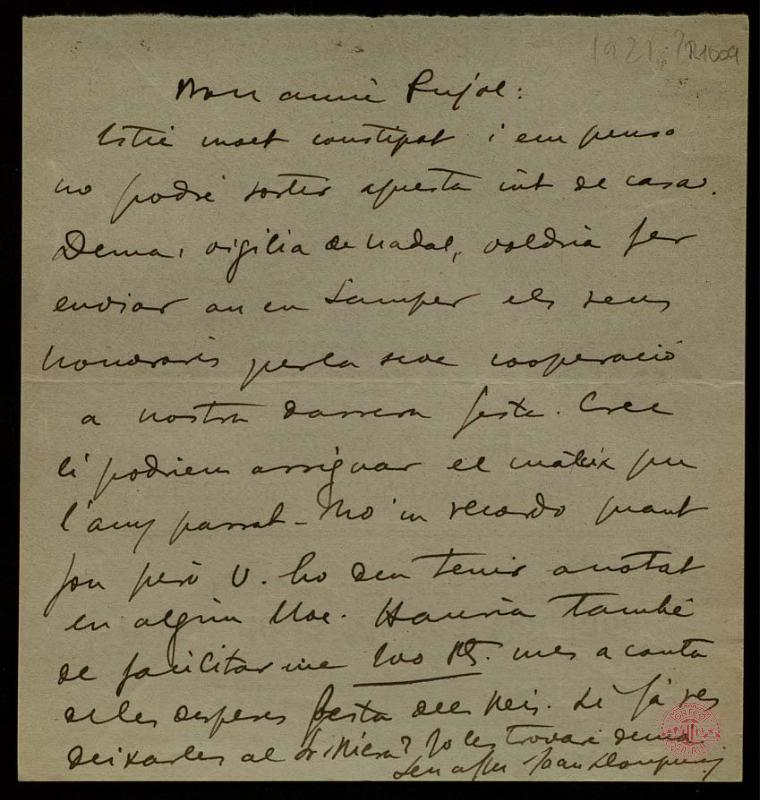 1921? R1009
Mon amic Pujol:
Estic molt constipat i em penso
no podré sortir aquesta nit de casa.
Demà, vigilia de Nadal, voldria fer
enviar an en Samper els seus
honoraris per la seva cooperació
a nostra darrera festa. Crec
li podriem assignar el mateix que
l'any passat - No'm recordo quant
fou però V. ho deu tenir anotat
en algún lloc. Hauria també
de facilitarme 100 Pts. mes a conta
de les despeses festa dels Reis. Li fa res
deixarles al Sr. Riera? Jo les trovaré demà
Seu affm Joan Llongueras